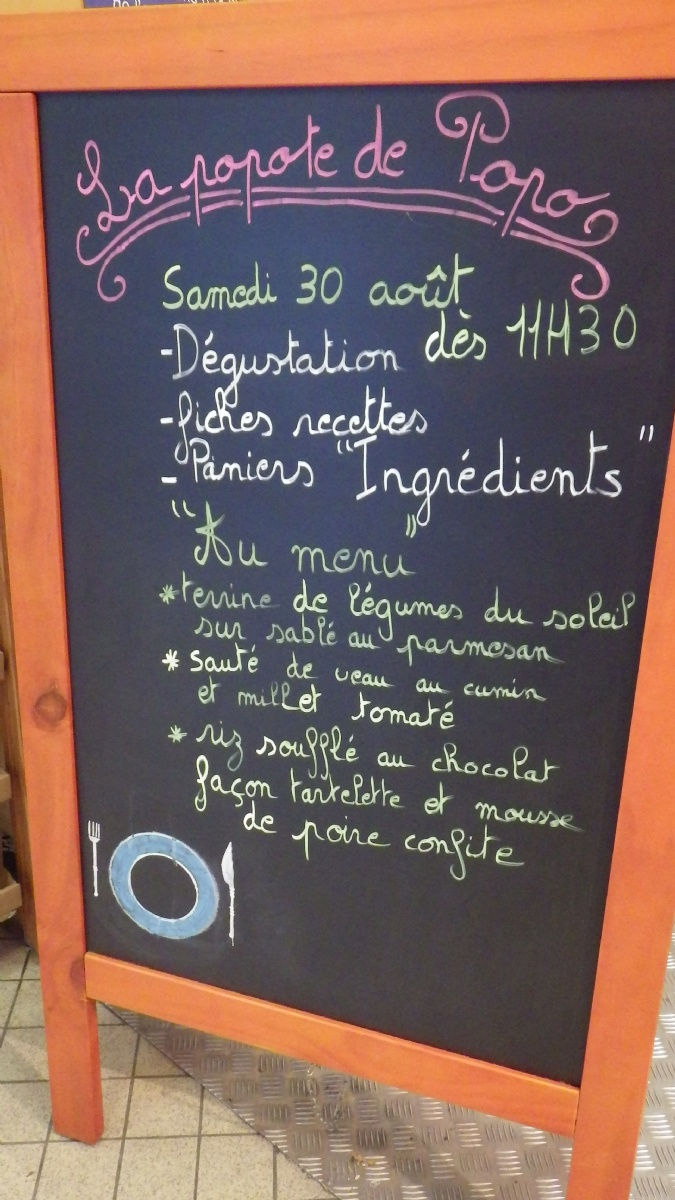 La popote de Popo
Samedi 30 août
dès 11H30
-Dégustation
-fiches recettes
- Paniers "Ingrédients"
"Au menu"
*terrine de légumes du soleil
sur sablé au parmesan
* sauté de veau au cumin
et millet tomaté
* riz soufflé au chocolat
façon tartelette et mousse
de poire confite